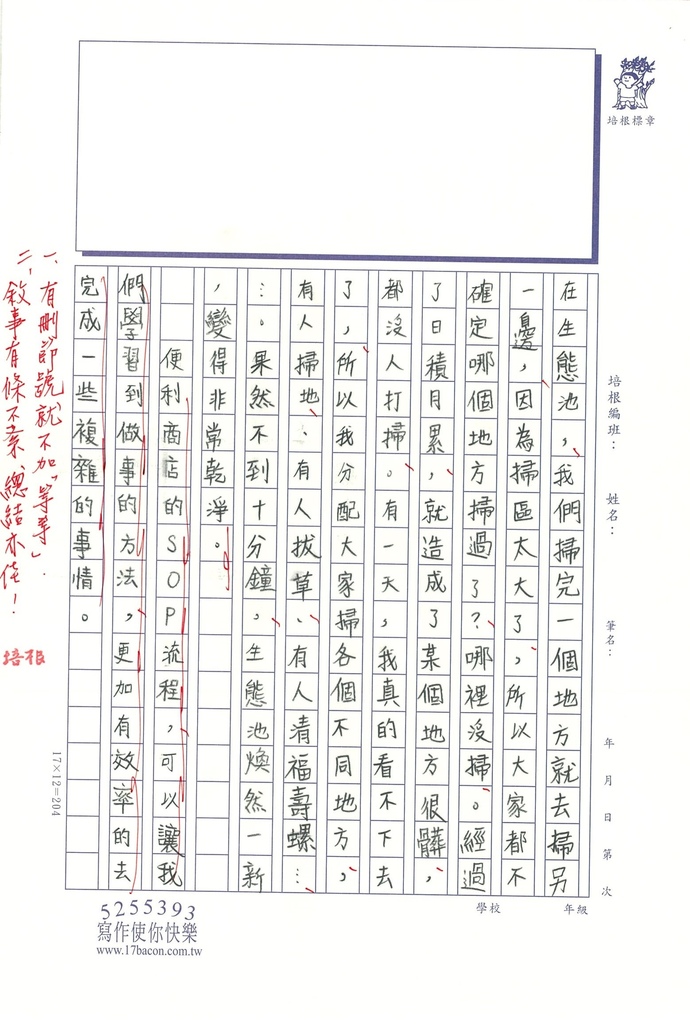 培根標章
培根編班：
姓名：
筆名：
年 月 日 第 次
在生態池，我們掃完一個地方就去掃另
一邊，因為掃區太大了，所以大家都不
確定哪個地方掃過了？哪裡沒掃。經過
了日積月累，就造成了某個地方很髒，
都沒人打掃。有一天，我真的看不下去
了，所以我分配大家掃各個不同地方，
有人掃地、有人拔草、有人清福壽螺…
…。果然不到十分鐘，生態池煥然一新
，變得非常乾淨。
便利商店的SOP流程，可以讓我
們學習到做事的方法，更加有效率的去
完成一些複雜的事情。
一、有刪節號就不加「等等」.
二、敘事有條不紊、總結亦佳！
培根
17×12=204
學校
年級
5255393
寫作使你快樂
www.17bacon.com.tw